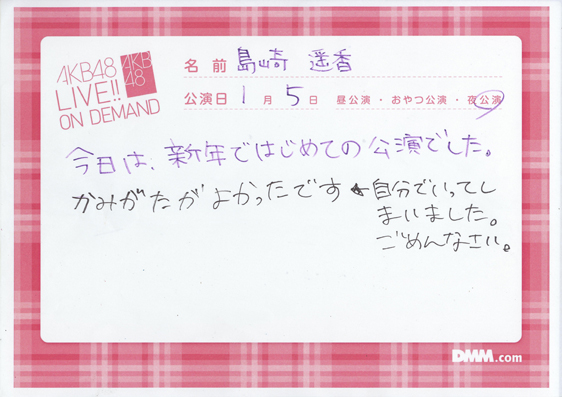 AKB48
LIVE!!
ON DEMAND
AKB
48
名前 島崎 遥香
公演日 1月5日 昼公演・おやつ公演・夜公演
今日は、新年ではじめての公演でした。
かみがたがよかったです ← 自分でいってし
まいました。
ごめんなさい。
DMM.com